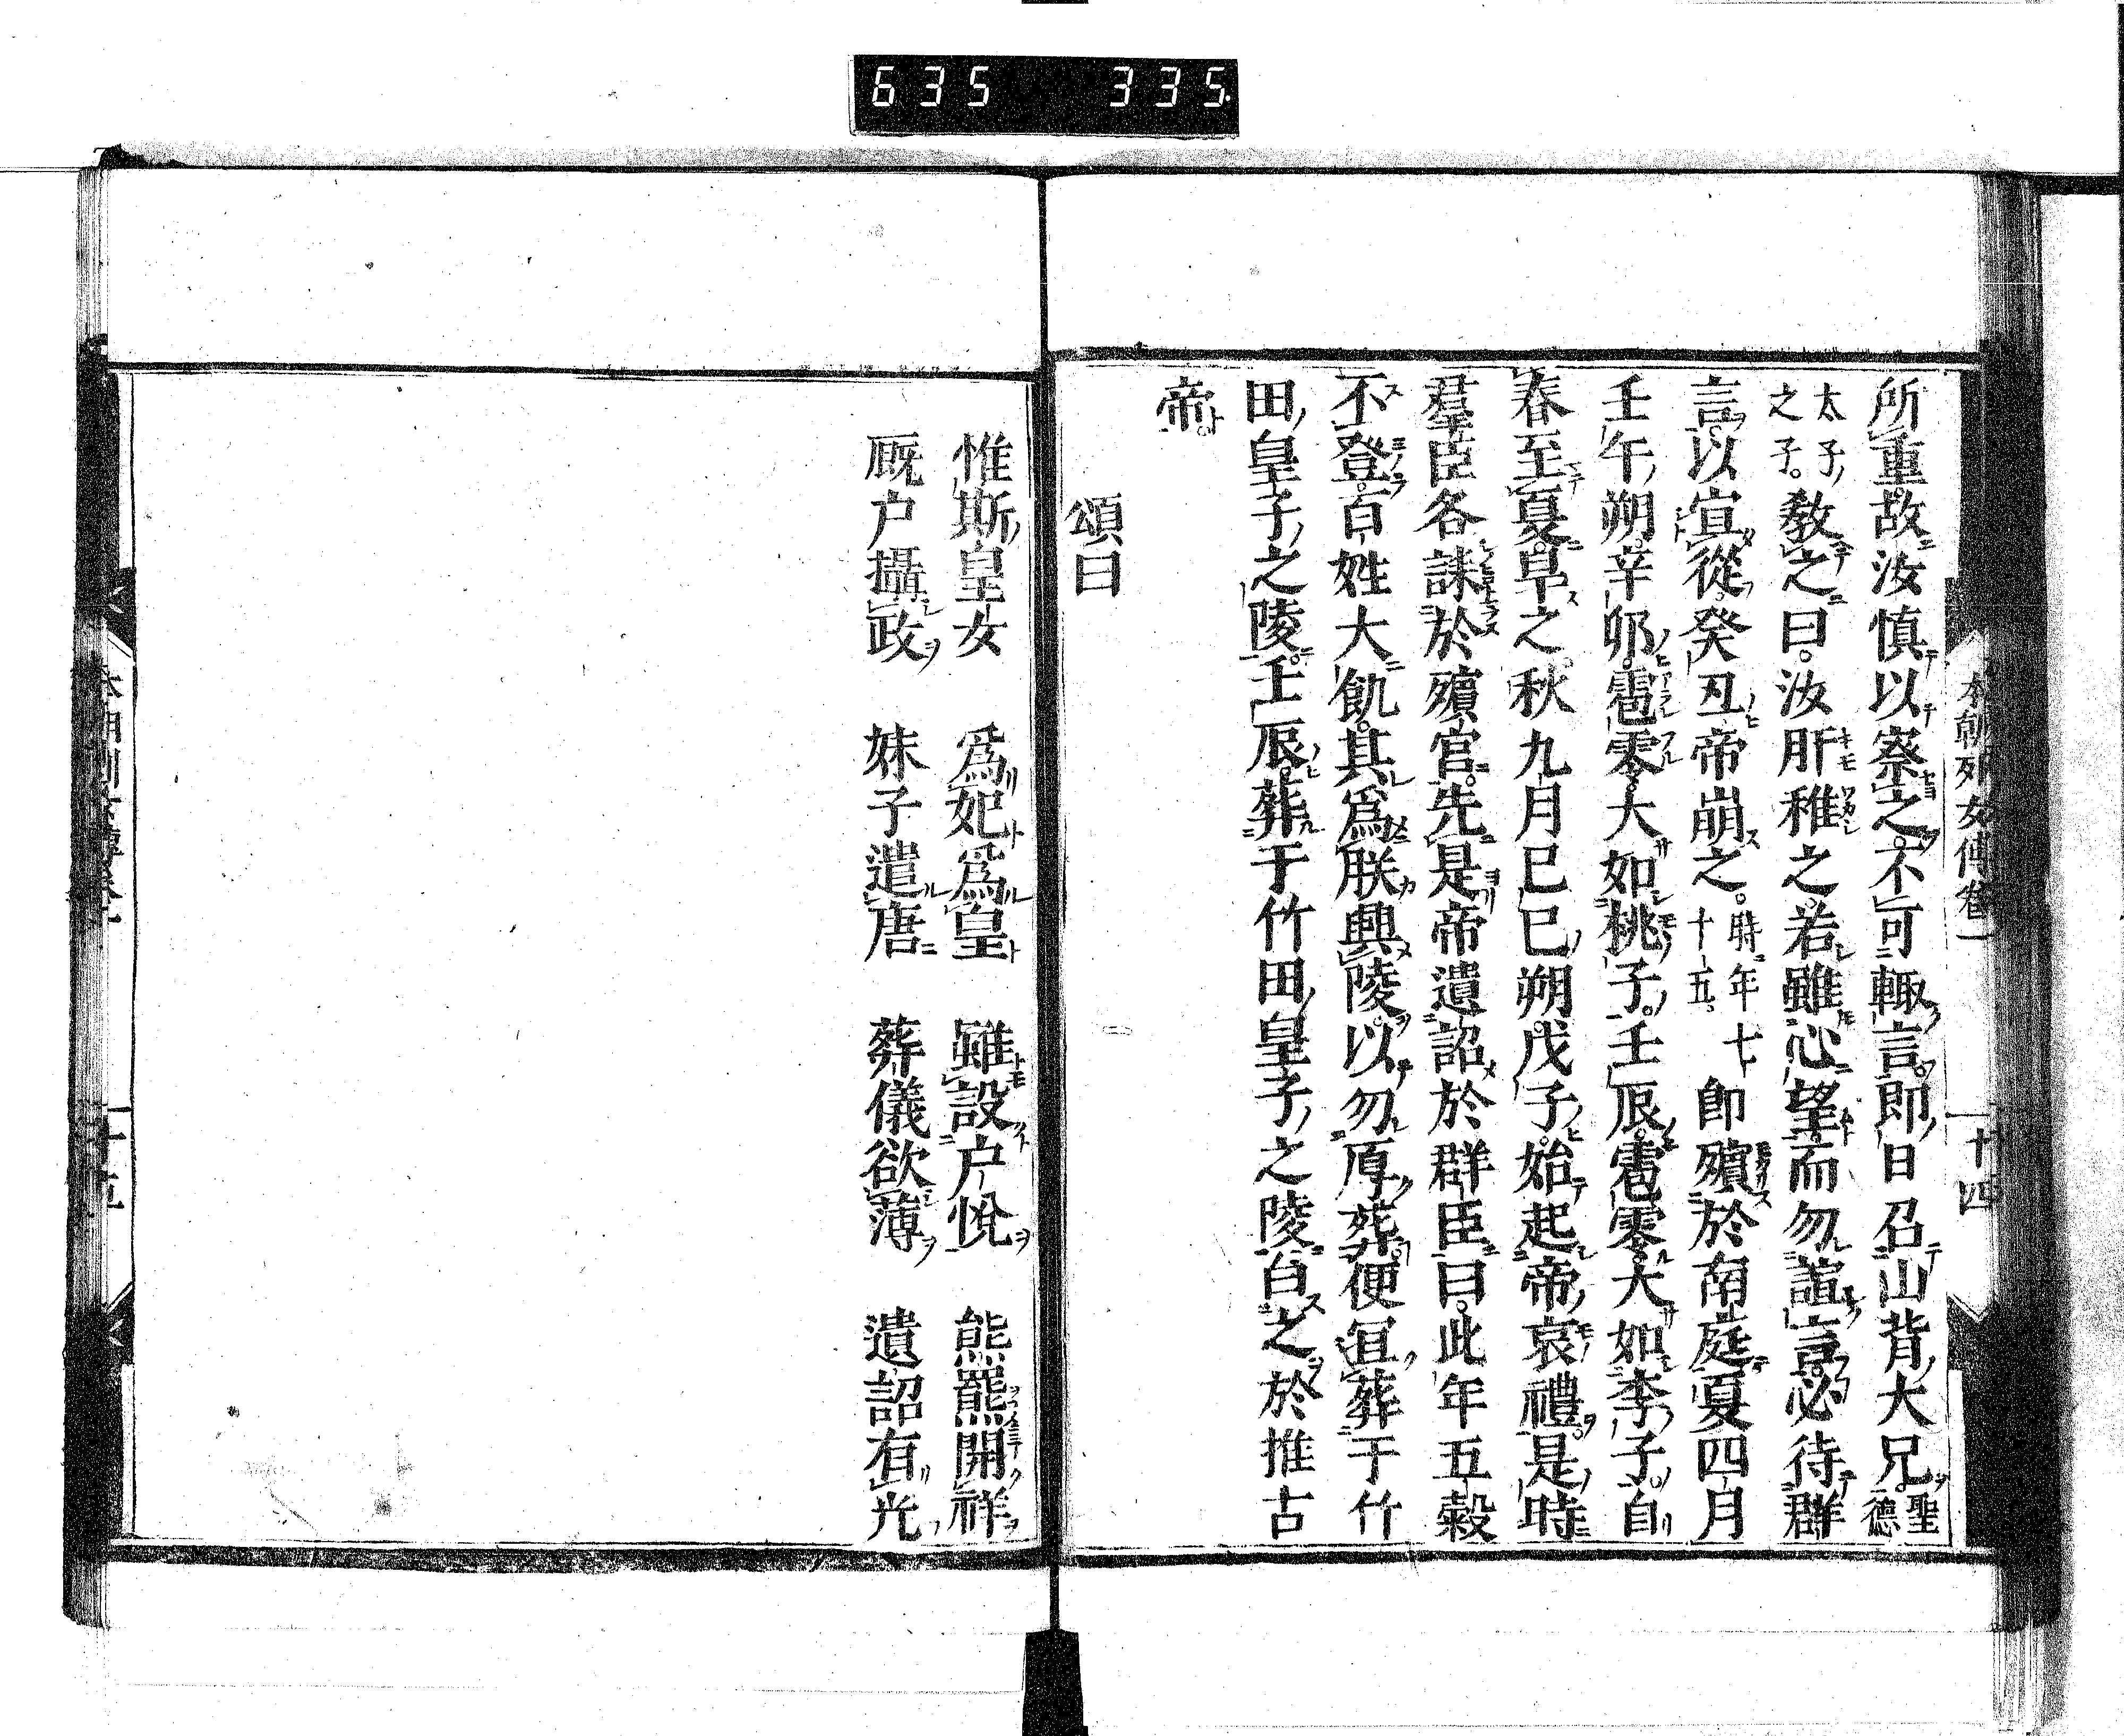 635 335
本朝列女傳卷一 十四
所重故汝慎以察之不可輙言即日召山背大兄聖德
太子之子。教之曰。汝肝稚之。若雖心望而勿諠言必待群
言以宜從。癸丑帝崩之。時年七十五。即殯於南庭夏四月
壬午朔辛卯雹零大如桃子。壬辰雹零大如李子。自
春至夏旱之秋九月己巳朔戊子始起帝哀禮是時
羣臣各誄於殯宮。先是帝遺詔於群臣曰。此年五穀
不登。百姓大飢。其爲朕興陵以勿厚葬。便宜葬于竹
田皇子之陵。壬辰葬于竹田皇子之陵白之於推古
帝
頌曰
惟斯皇女 爲妃爲皇 雖設户悅 熊羆開祥
厩户攝政 妹子遣唐 葬儀欲薄 遺詔有光